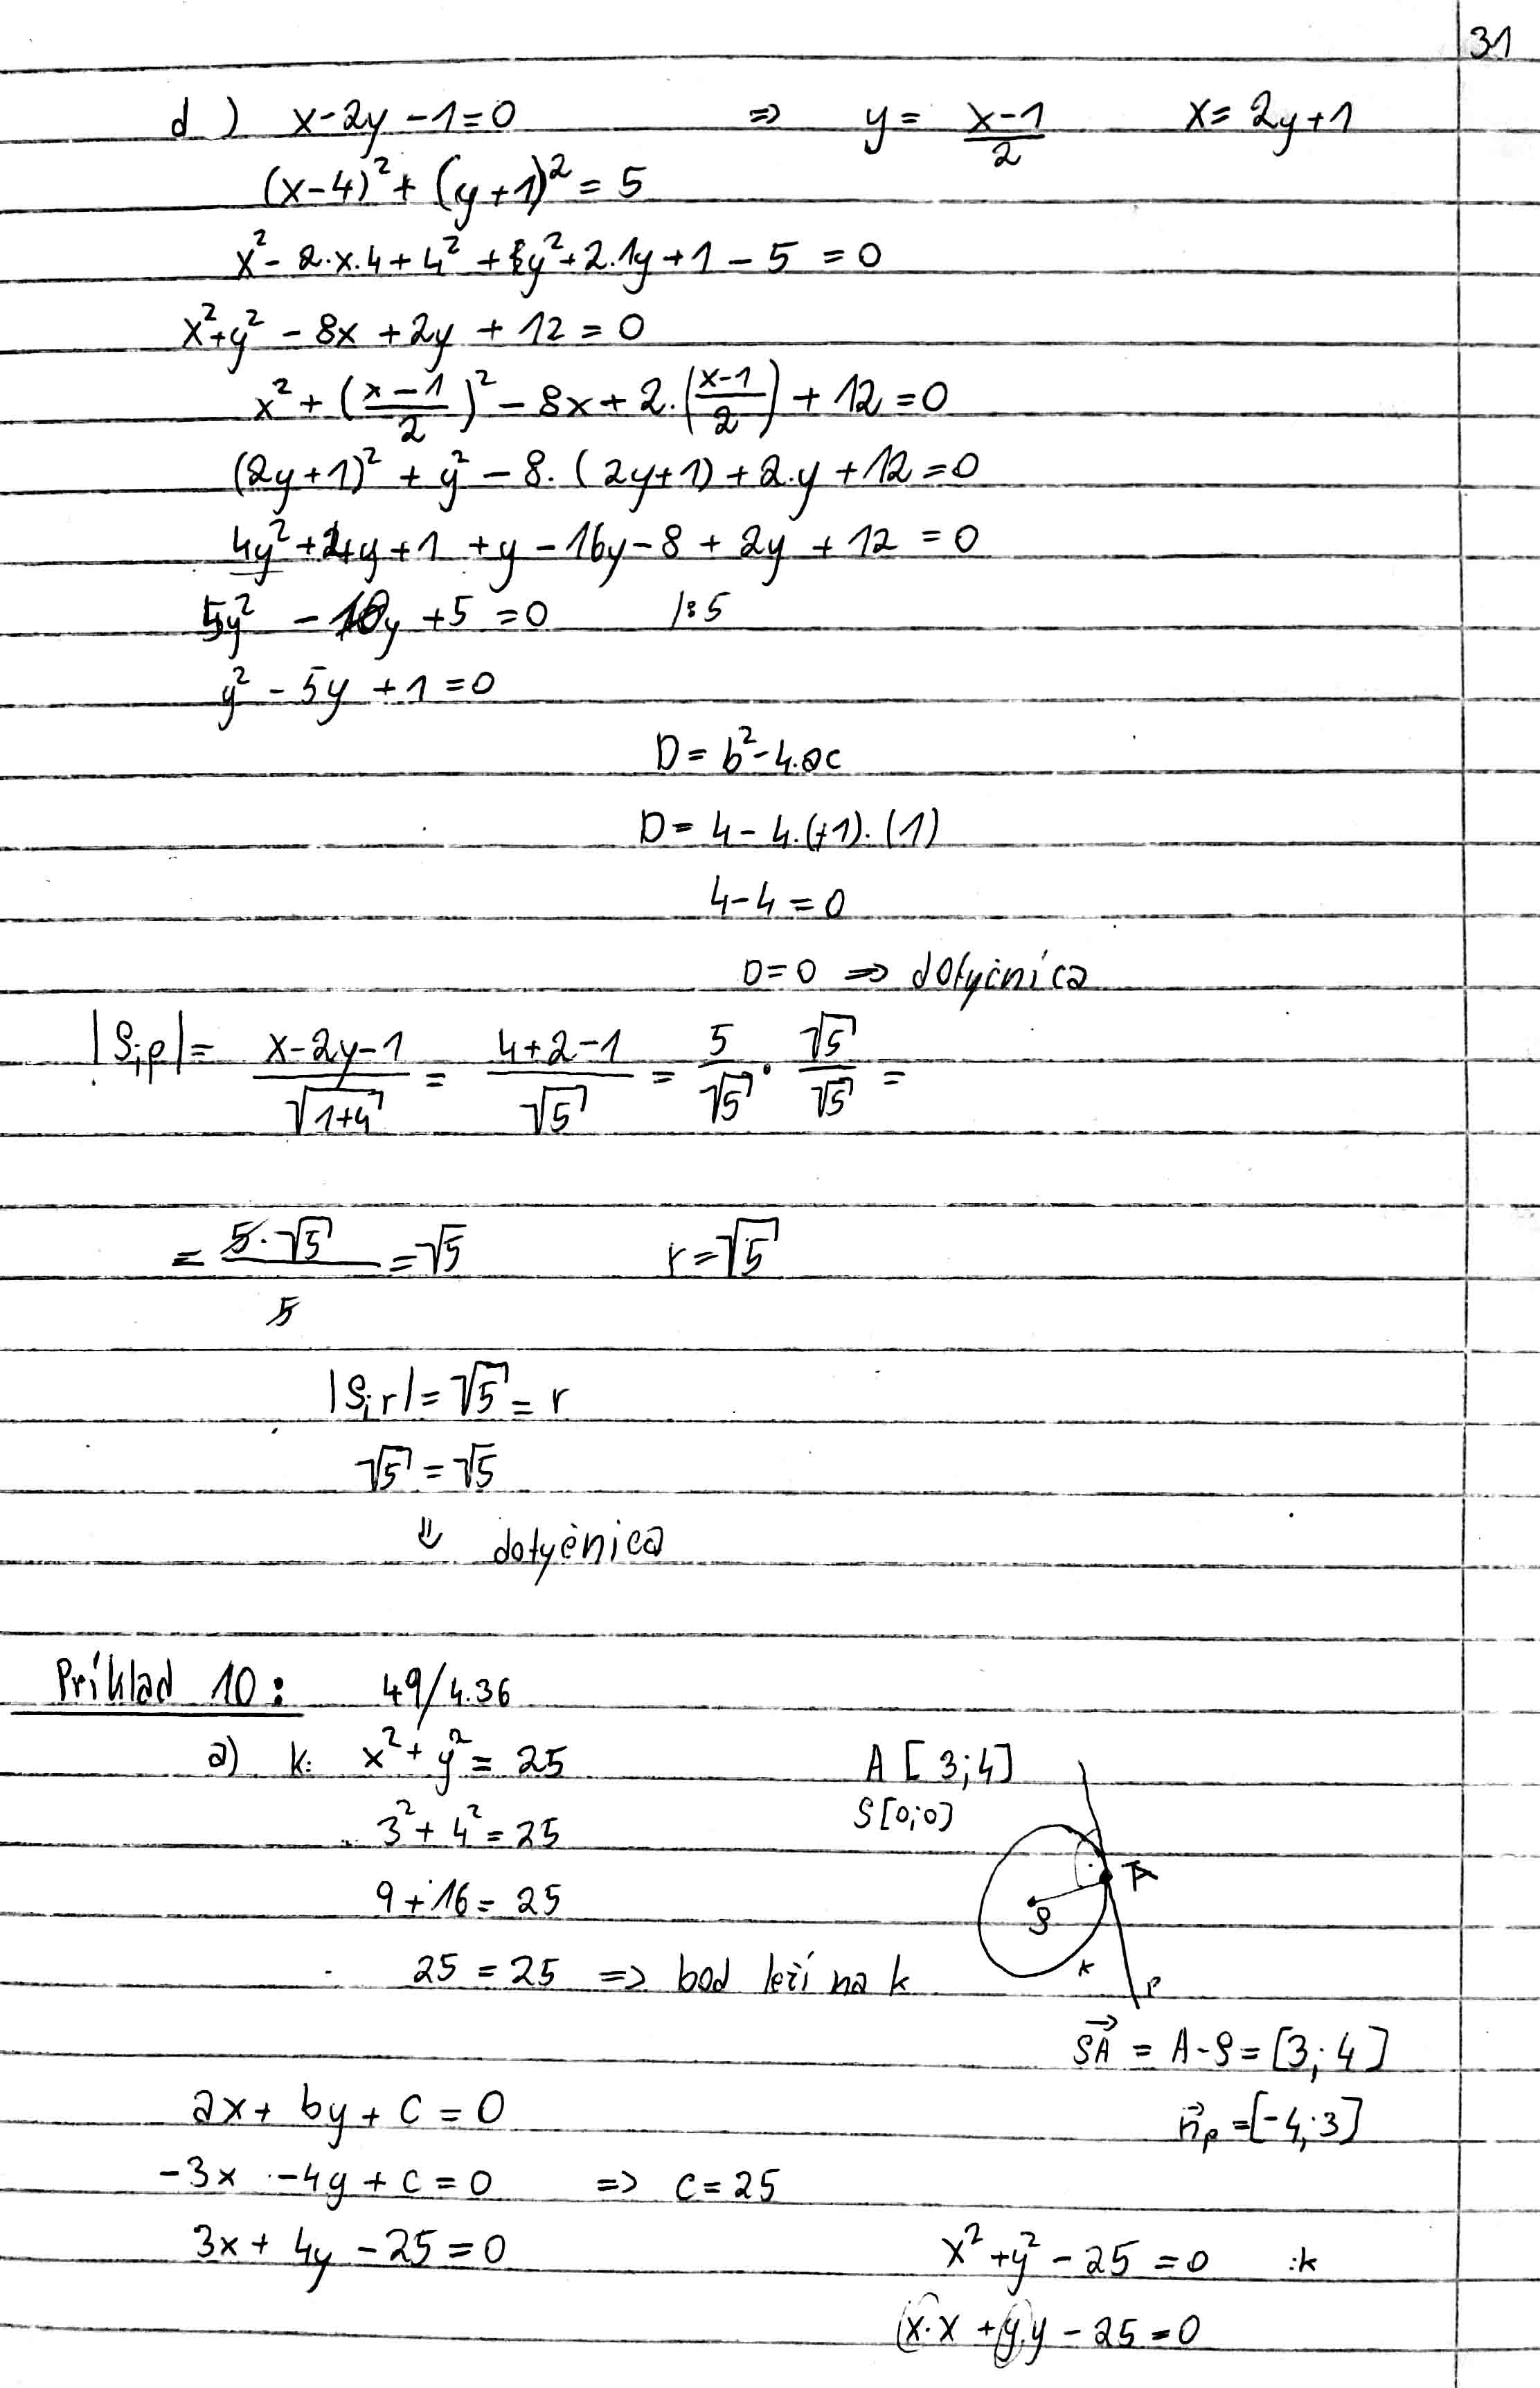 31
d) x-2y-1=0 ⇒ y = (x-1)/2 x = 2y+1
(x-4)² + (y+1)² = 5
x² - 2·x·4 + 4² + y² + 2·1y + 1 - 5 = 0
x²+y² - 8x + 2y + 12 = 0
x² + ((x-1)/2)² - 8x + 2·((x-1)/2) + 12 = 0
(2y+1)² + y² - 8·(2y+1) + 2·y + 12 = 0
4y² + 4y + 1 + y - 16y - 8 + 2y + 12 = 0
5y² - 10y + 5 = 0 /:5
y² - 5y + 1 = 0
D = b² - 4·ac
D = 4 - 4·(+1)·(1)
4-4 = 0
D=0 ⇒ dotyčnica
|S;p| = (x-2y-1)/√(1+4) = (4+2-1)/√5 = 5/√5 · √5/√5 =
= (5·√5)/5 = √5 r = √5
|S;r| = √5 = r
√5 = √5
⇓ dotyčnica
Príklad 10: 49/4.36
a) k: x² + y² = 25 A [3;4]
3² + 4² = 25 S[0;0]
9 + 16 = 25 A
S
25 = 25 ⇒ bod leží na k k
p
SA⃗ = A-S = [3;4]
ax + by + c = 0 n⃗p = [-4;3]
-3x -4y + c = 0 ⇒ c = 25
3x + 4y - 25 = 0 x² + y² - 25 = 0 :k
(x·x + (y·y - 25 = 0